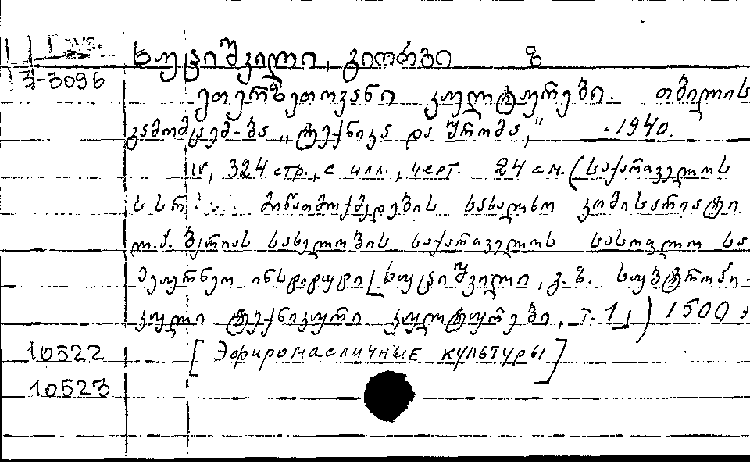 3-3096
ხუციშვილი, გიორგი ზ
ეთერზეთოვანი კულტურები. თბილის
გამომცემ-ბა „ტექნიკა და შრომა," 1940.
IV, 324 стр., с илл., черт. 24 см. (საქართველოს
სსრ მიწათმოქმედების სახალხო კომისარიატი
ლ. პ. ბერიას სახელობის საქართველოს სასოფლო სა
მეურნეო ინსტიტუტი [ხუციშვილი, გ. ზ. სუბტროპი-
კული ტექნიკური კულტურები, т. 1,) 1500
10522 [Эфиромасличные культуры]
10523